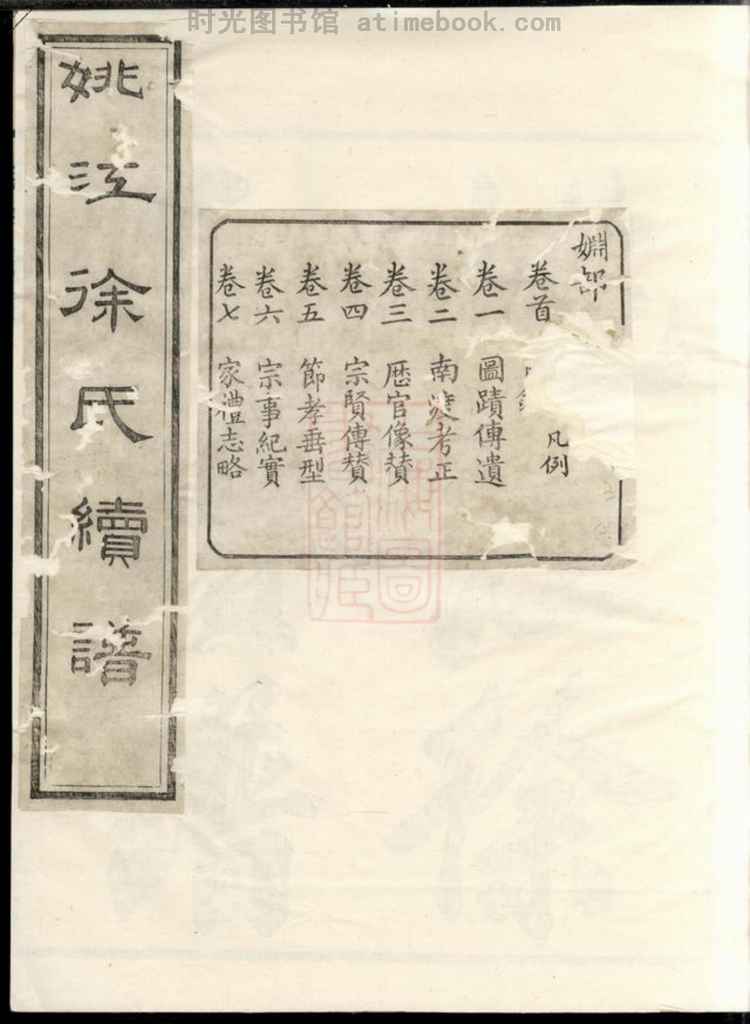 时光图书馆 atimebook.com
姚江徐氏續譜
卷首 凡例
卷一 圖蹟傳遺
卷二 南遷考正
卷三 歷官像贊
卷四 宗賢傳贊
卷五 節孝垂型
卷六 宗事紀實
卷七 家禮志略